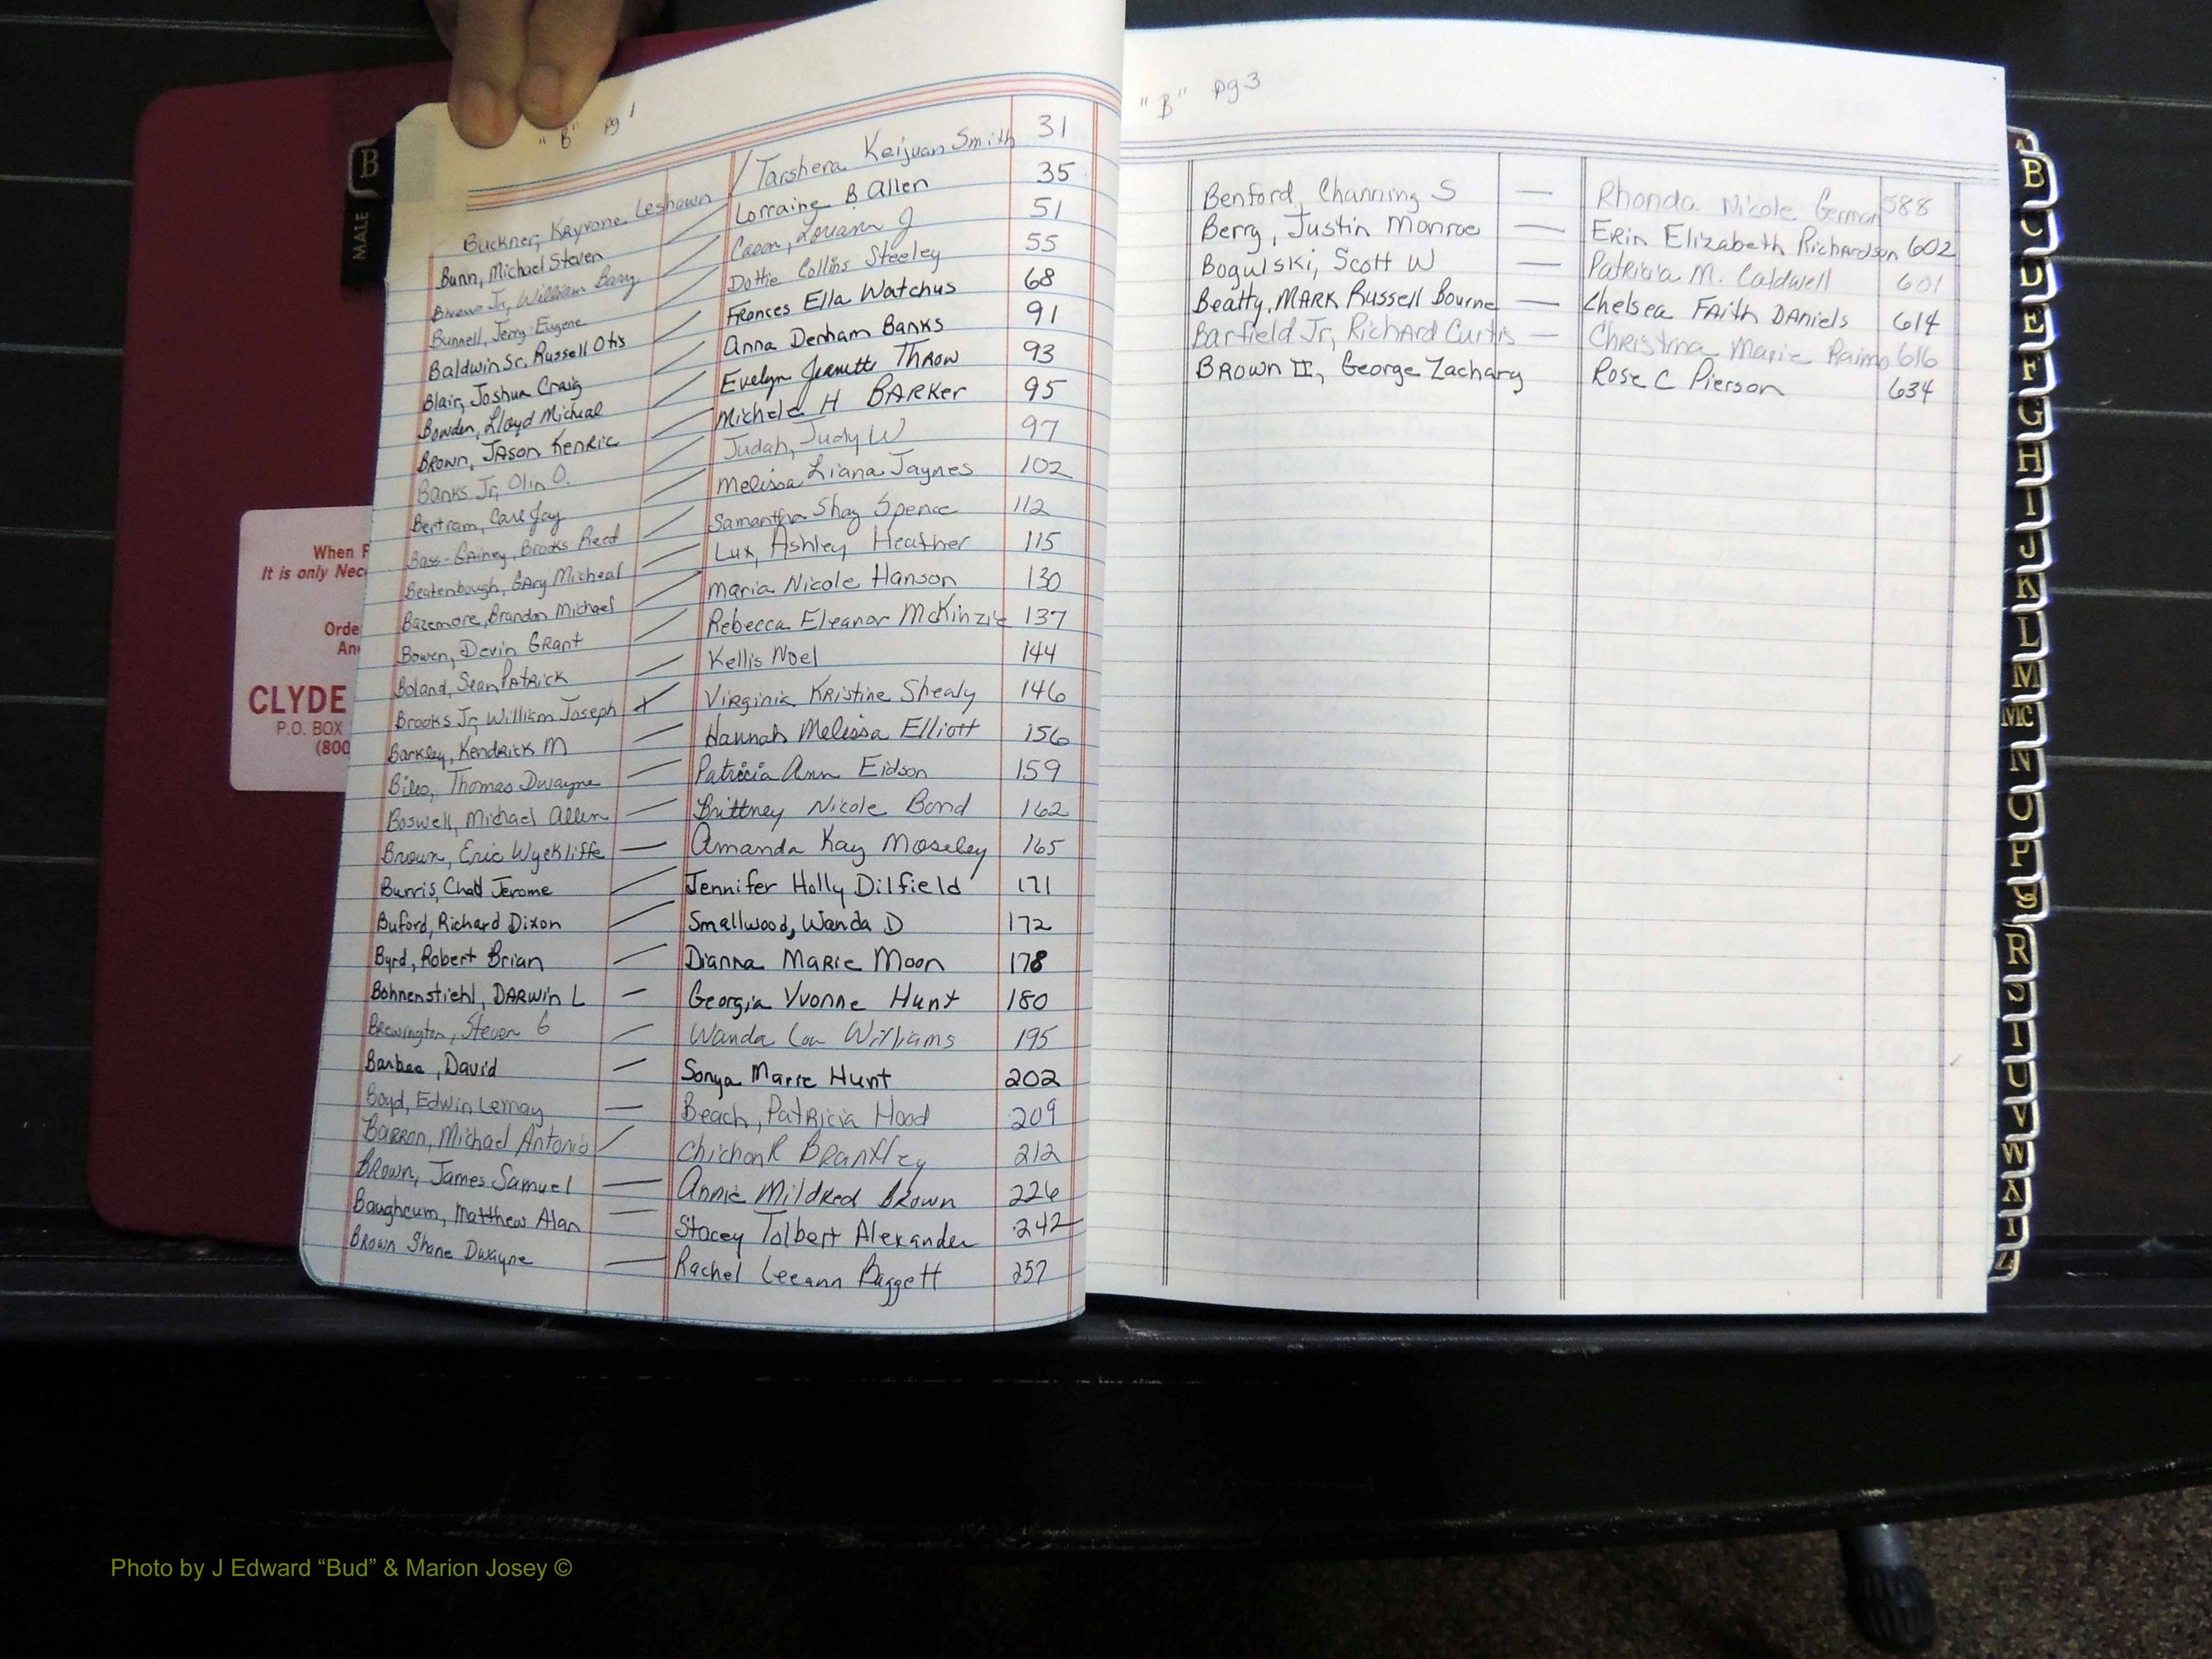 "B" pg 1
Buckner, Kayvone Leshawn / Tarshera Keijuan Smith 31
Bunn, Michael Steven — Lorraine B Allen 35
Jr, William Barry — Cason, Louann J 51
Bunnell, Jerry Eugene — Dottie Collins Steeley 55
Baldwin Sr, Russell Otis — Frances Ella Watchus 68
Blair, Joshua Craig — Anna Denham Banks 91
Bowden, Lloyd Micheal — Evelyn Jeanette Throw 93
Brown, Jason Kenric — Michele H Barker 95
Banks Jr, Olin O. — Judah, Judy W 97
Bertram, Carl Jay — Melissa Liana Jaynes 102
Bass-Gainey, Brooks Reed — Samantha Shay Spence 112
Beatenbough, Gary Micheal — Lux, Ashley Heather 115
Bazemore, Brandon Michael — Maria Nicole Hanson 130
Bowen, Devin Grant — Rebecca Eleanor McKinzie 137
Boland, Sean Patrick — Kellis Noel 144
Brooks Jr, William Joseph — Virginia Kristine Shealy 146
Barkley, Kendrick M — Hannah Melissa Elliott 156
Biles, Thomas Dwayne — Patricia Ann Eidson 159
Boswell, Michael Allen — Brittney Nicole Bond 162
Brown, Eric Wyckliffe — Amanda Kay Moseley 165
Burris, Chad Jerome — Jennifer Holly Dilfield 171
Buford, Richard Dixon — Smallwood, Wanda D 172
Byrd, Robert Brian — Dianna Marie Moon 178
Bohnenstiehl, Darwin L — Georgia Yvonne Hunt 180
Brewington, Steven G — Wanda Lou Williams 195
Barbee, David — Sonya Marie Hunt 202
Boyd, Edwin Lemay — Beach, Patricia Hood 209
Barron, Michael Antonio — Chichon R Brantley 212
Brown, James Samuel — Annie Mildred Brown 226
Baugheum, Matthew Alan — Stacey Tolbert Alexander 242
Brown Shane Dwayne — Rachel Leeann Baggett 257
"B" pg 3
Benford, Channing S — Rhonda Nicole German 588
Berry, Justin Monroe — Erin Elizabeth Richardson 602
Bogulski, Scott W — Patricia M. Caldwell 601
Beatty, Mark Russell Bourne — Chelsea Faith Daniels 614
Barfield Jr, Richard Curtis — Christina Marie Raimo 616
Brown II, George Zachary Rose C Pierson 634
B
MALE
When
It is only Nec
Orde
An
CLYDE
P.O. BOX
(800
B
C
D
E
F
G
H
I
J
K
L
M
MC
N
O
P
Q
R
S
T
U
V
W
X
Y
Z
Photo by J Edward “Bud” & Marion Josey ©